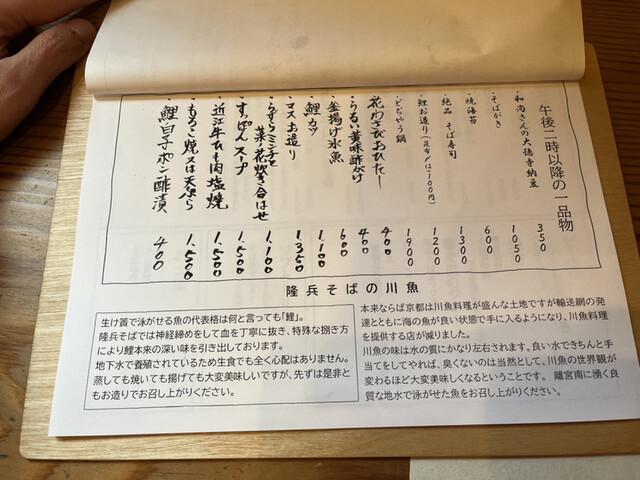 午後二時以降の一品物
・和尚さんの大徳寺納豆 350
・そばがき 1050
・焼海苔 600
・絶品 そば寿司 1300
・鯉お造り(昆布〆は+100円) 1200
・どぢやう鍋 1900
花わさびおひたし 400
・うるい黄味酢がけ 400
・釜揚げ氷魚 600
・鯉カツ 1,100
・マスお造り 1,350
菜の花炊き合はせ 1,100
・すっぽんスープ 1,500
・近江牛ひも肉塩焼 1,500
・もろこ焼又は天ぷら 1,500
・鯉白子ポン酢漬 400
隆兵そばの川魚
生け簀で泳がせる魚の代表格は何と言っても「鯉」。
隆兵そばでは神経締めをして血を丁寧に抜き、特殊な捌き方
により鯉本来の深い味を引き出しております。
地下水で養殖されているため生食でも全く心配はありません。
蒸しても焼いても揚げても大変美味しいですが、先ずは是非と
もお造りでお召し上がりください。
本来ならば京都は川魚料理が盛んな土地ですが輸送網の発
達とともに海の魚が良い状態で手に入るようになり、川魚料理
を提供する店が減りました。
川魚の味は水の質にかなり左右されます。良い水できちんと手
当てをしてやれば、臭くないのは当然として、川魚の世界観が
変わるほど大変美味しくなるということです。 離宮南に湧く良
質な地水で泳がせた魚をお召し上がりください。